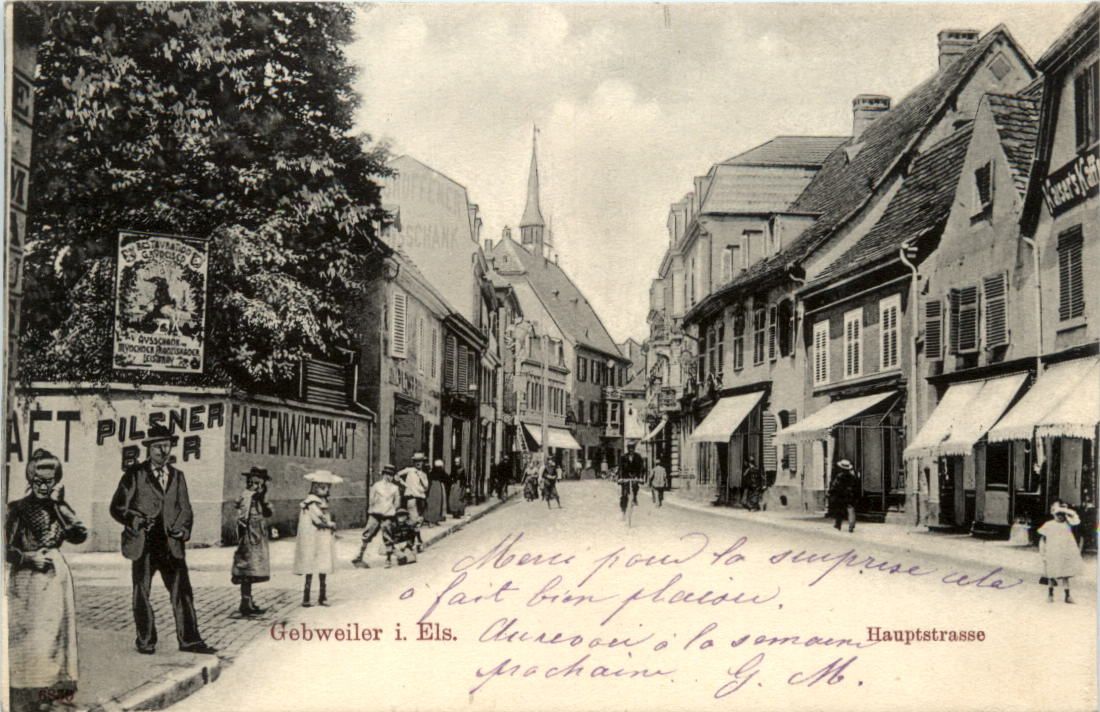 RESTAURATION
AUSSCHANK
MÜNCHNER
PILSNER
BIER
GARTENWIRTSCHAFT
AUSSCHANK
Kaiser's Kaffe
Merci pour la surprise cela
a fait bien plaisir.
Gebweiler i. Els.
Aurevoir à la semaine
Hauptstrasse
prochaine. G. M.